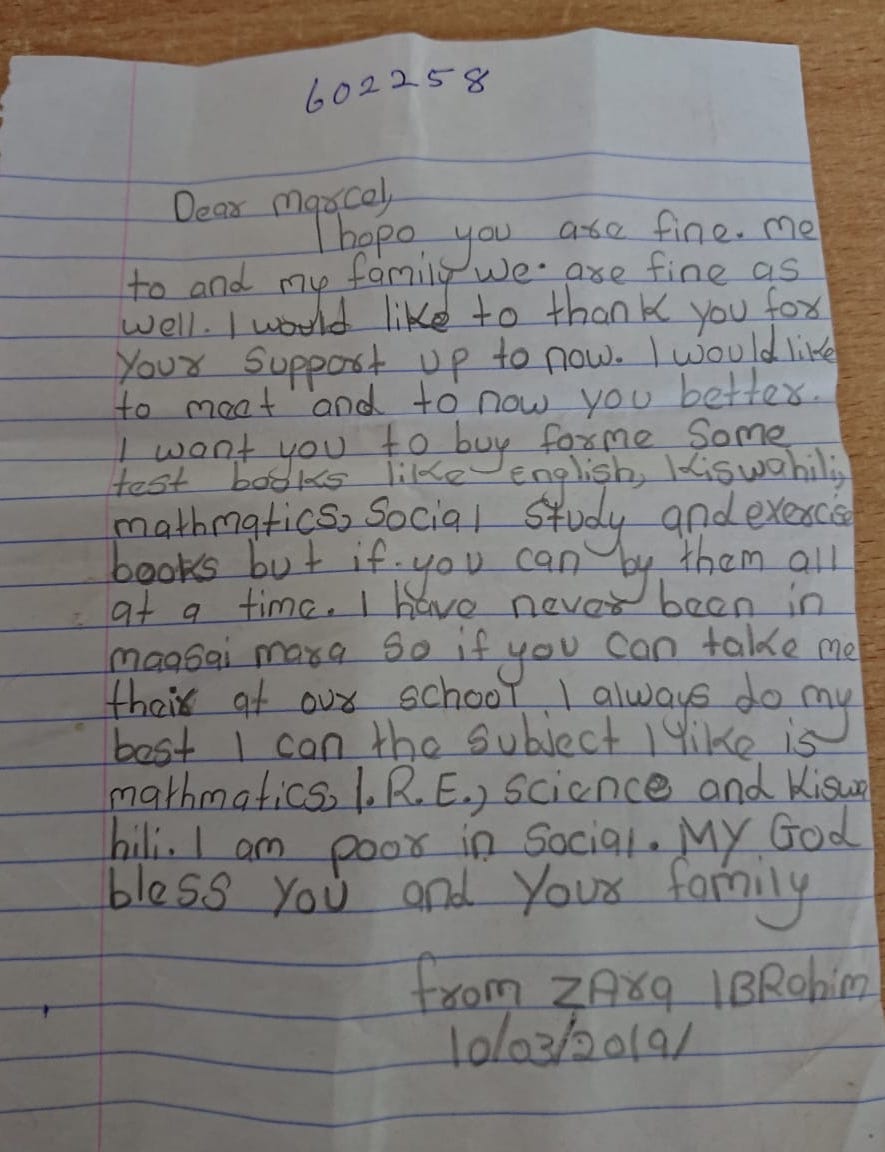 602258
Dear Marcel,
I hope you are fine. me
to and my family we. are fine as
well. I would like to thank you for
Your Support up to now. I would like
to meet and to now you better.
I want you to buy forme Some
test books like English, Kiswahili,
mathmatics, Social Study and exercise
books but if. you can by them all
at a time. I have never been in
maasai mara So if you can take me
their at our school I always do my
best I can the Subject I like is
mathmatics, I.R.E., Science and Kiswa
hili. I am poor in Social. MY God
bless You and Your family
from ZAra IBRahim
10/03/2019/